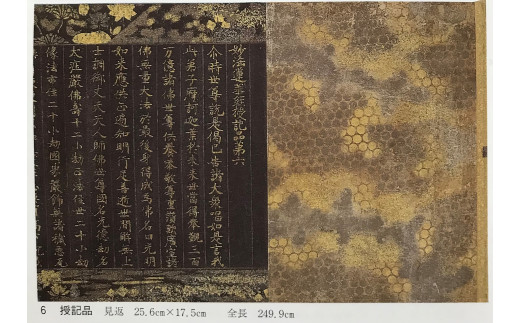 妙法蓮華經授記品第六
尒時世尊說是偈已告諸大衆唱如是言我
此弟子摩訶迦葉於未來世當得奉覲三百
万億諸佛世尊供養恭敬尊重讃歎廣宣諸
佛無量大法於最後身得成爲佛名曰光明
如來應供正遍知明行足善逝世間解無上
士調御丈夫天人師佛世尊國名光德劫名
大莊嚴佛壽十二小劫正法住世二十小劫
像法亦住二十小劫國界嚴飾無諸穢惡瓦
6 授記品 見返 25.6cm×17.5cm 全長 249.9cm